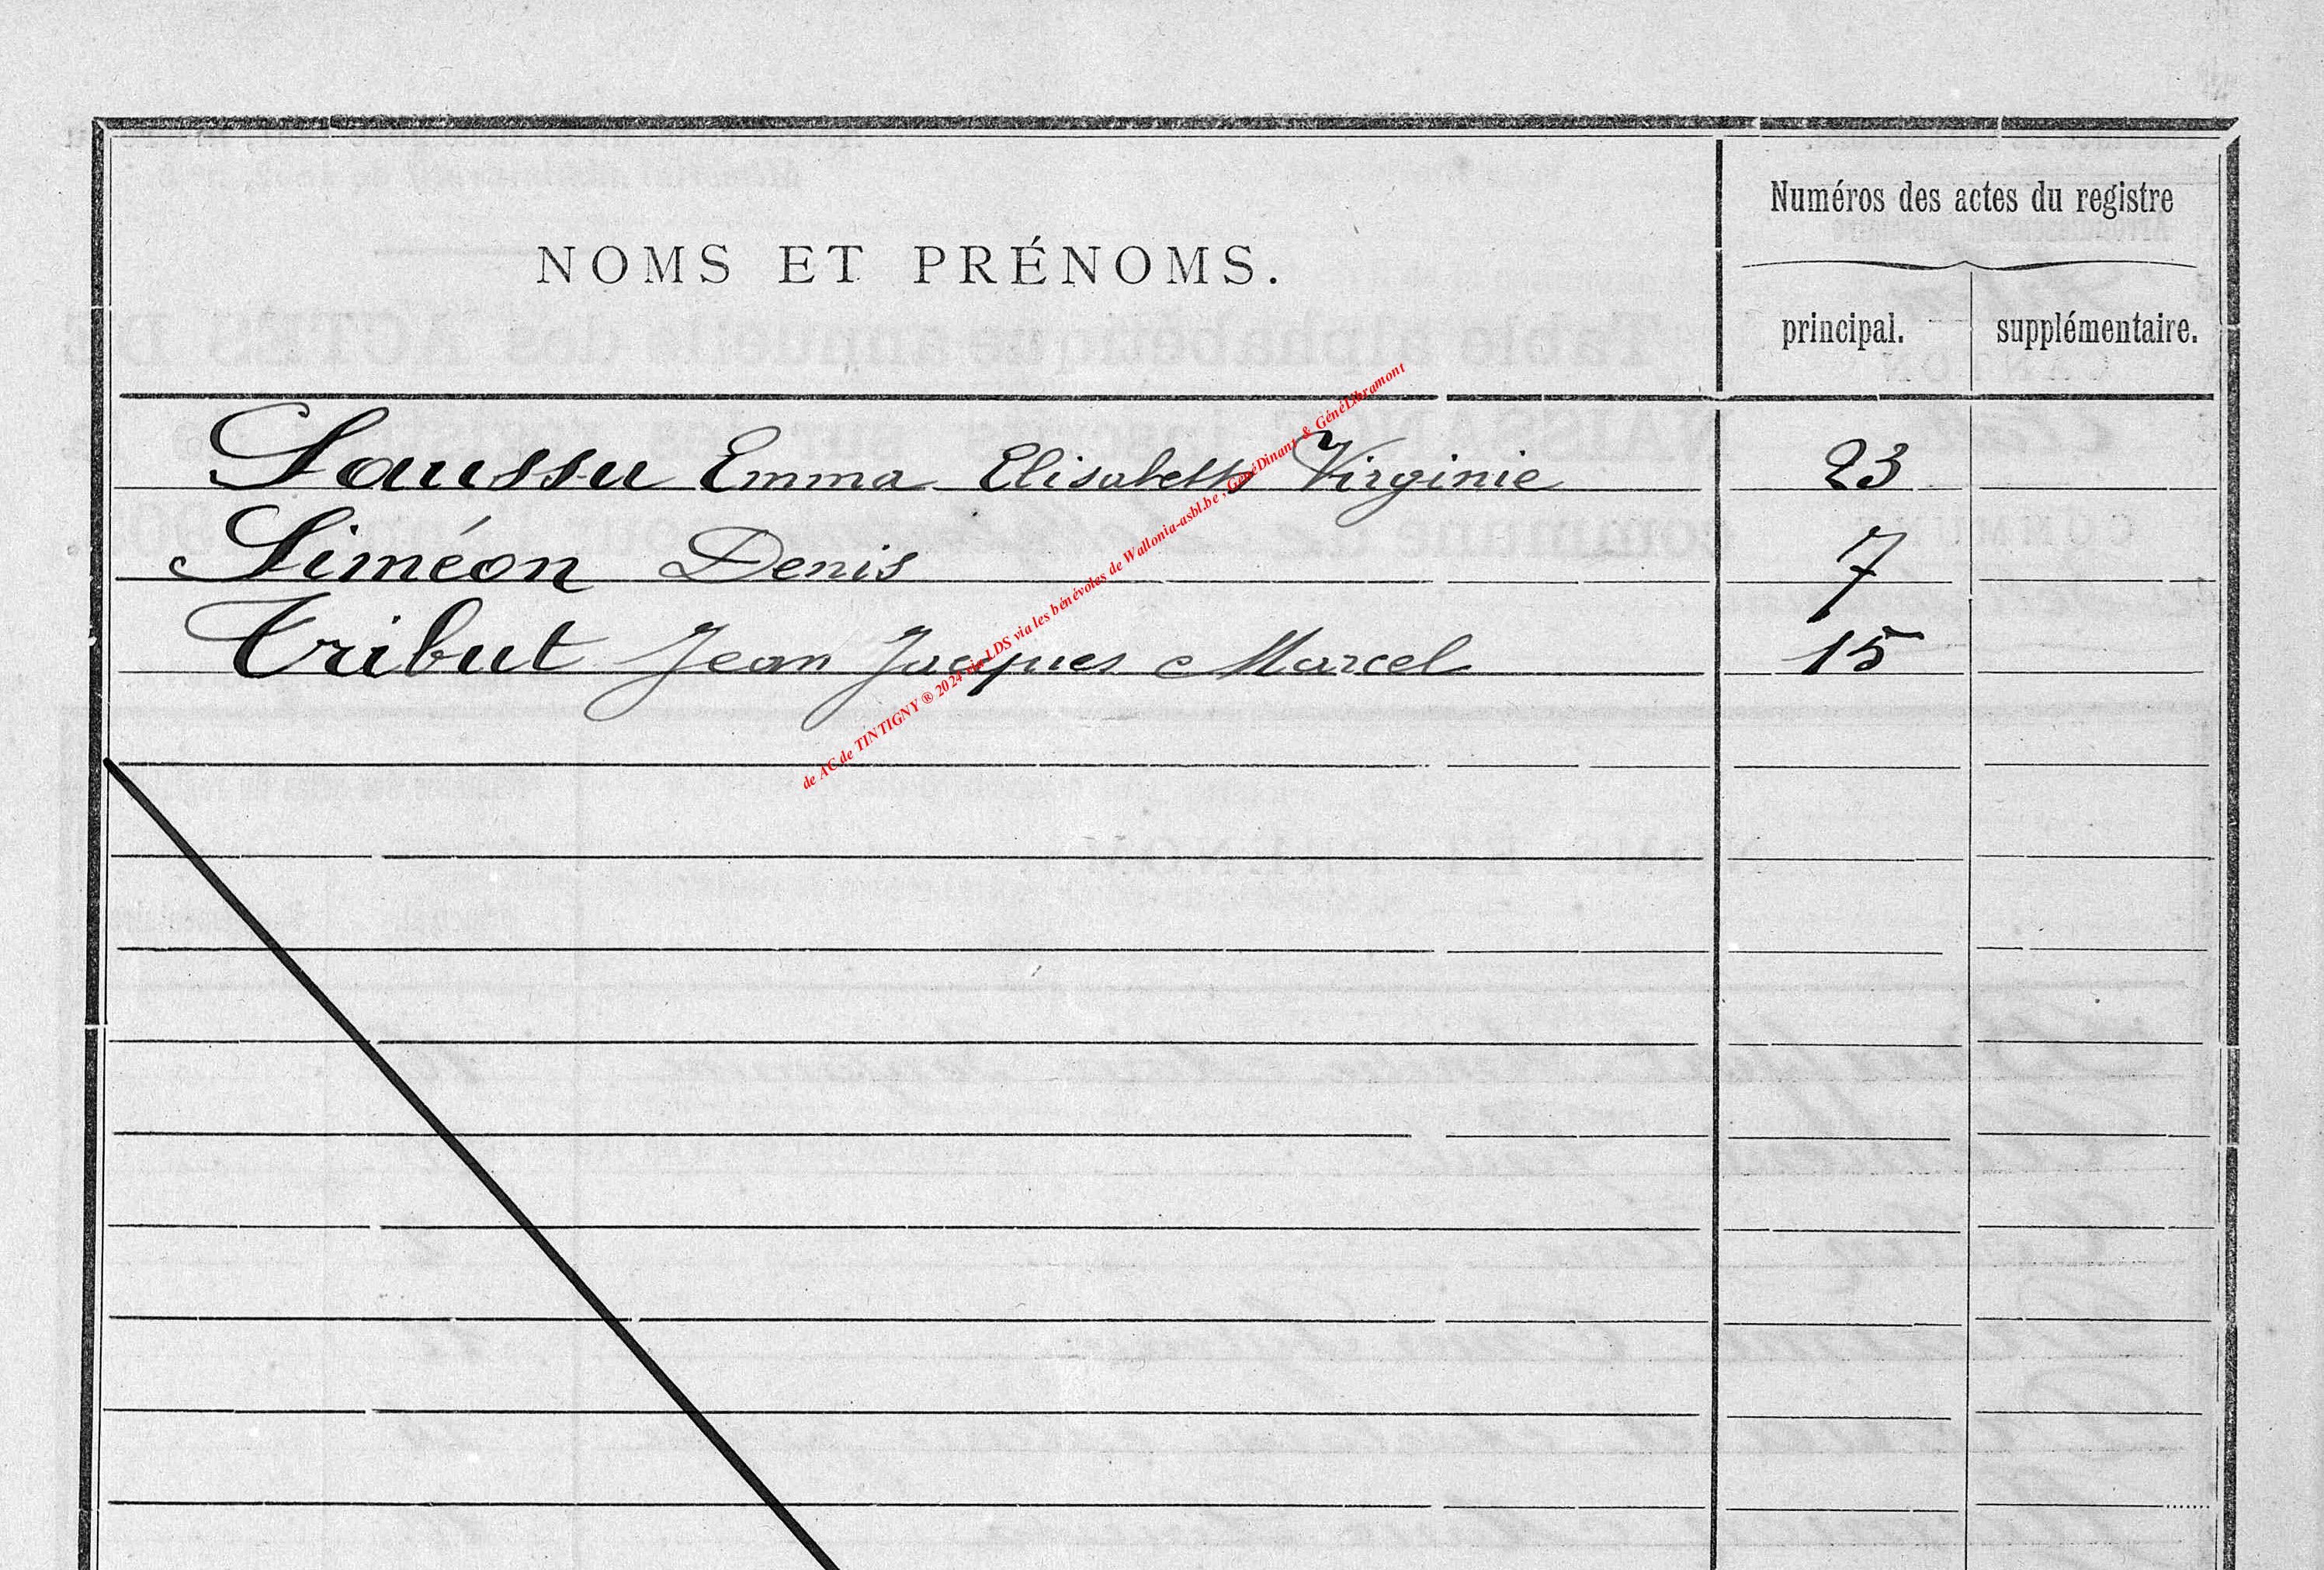 NOMS ET PRÉNOMS.
Numéros des actes du registre
principal. supplémentaire.
Saussu Emma Elisabeth Virginie 23
Siméon Denis 7
Tribut Jean Jacques Marcel 15
de AC de TINTIGNY ® 2024 via LDS via les bénévoles de Wallonia-asbl.be , GénéDinant & GénéLibramont